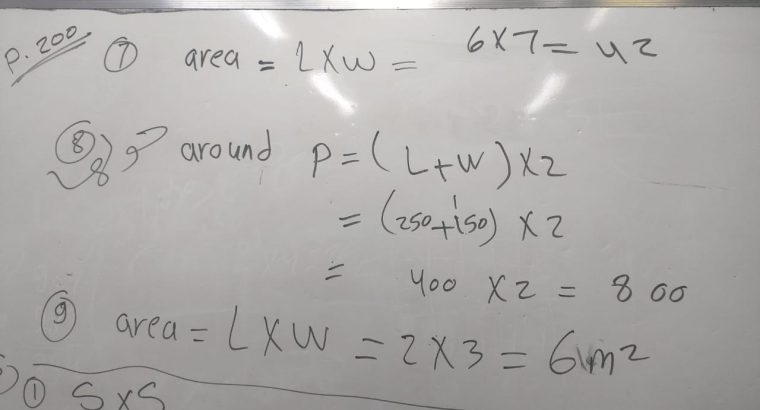 P. 200 ⑦ area = L X W = 6 X 7 = 42
⑧ around P = ( L + W ) X 2
= (250 + 150) X 2
= 400 X 2 = 800
⑨ area = L X W = 2 X 3 = 6 m2
① S X S